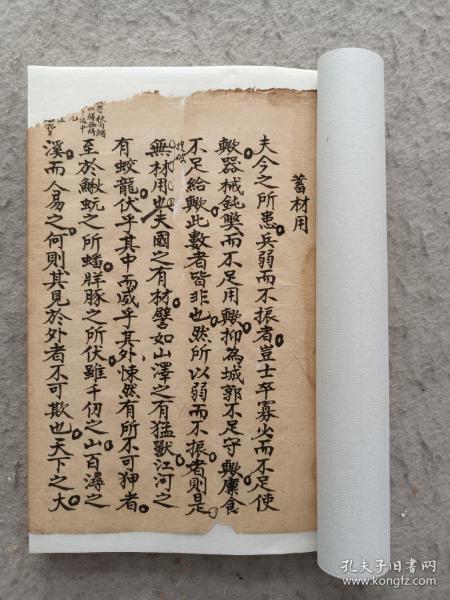 蓄材用
夫今之所患兵弱而不振者豈士卒寡少而不足使
歟器械鈍弊而不足用歟抑為城郭不足守歟廩食
不足給歟此數者皆非也然所以弱而不振者則是
無材用也夫國之有材譬如山澤之有猛獸江河之
有蛟龍伏乎其中而威乎其外悚然有所不可狎者
至於鰍蚖之所蟠牂豚之所伏雖千仞之山百潯之
溪而人易之何則其見於外者不可欺也天下之大
孔夫子旧书网
www.kongfz.com